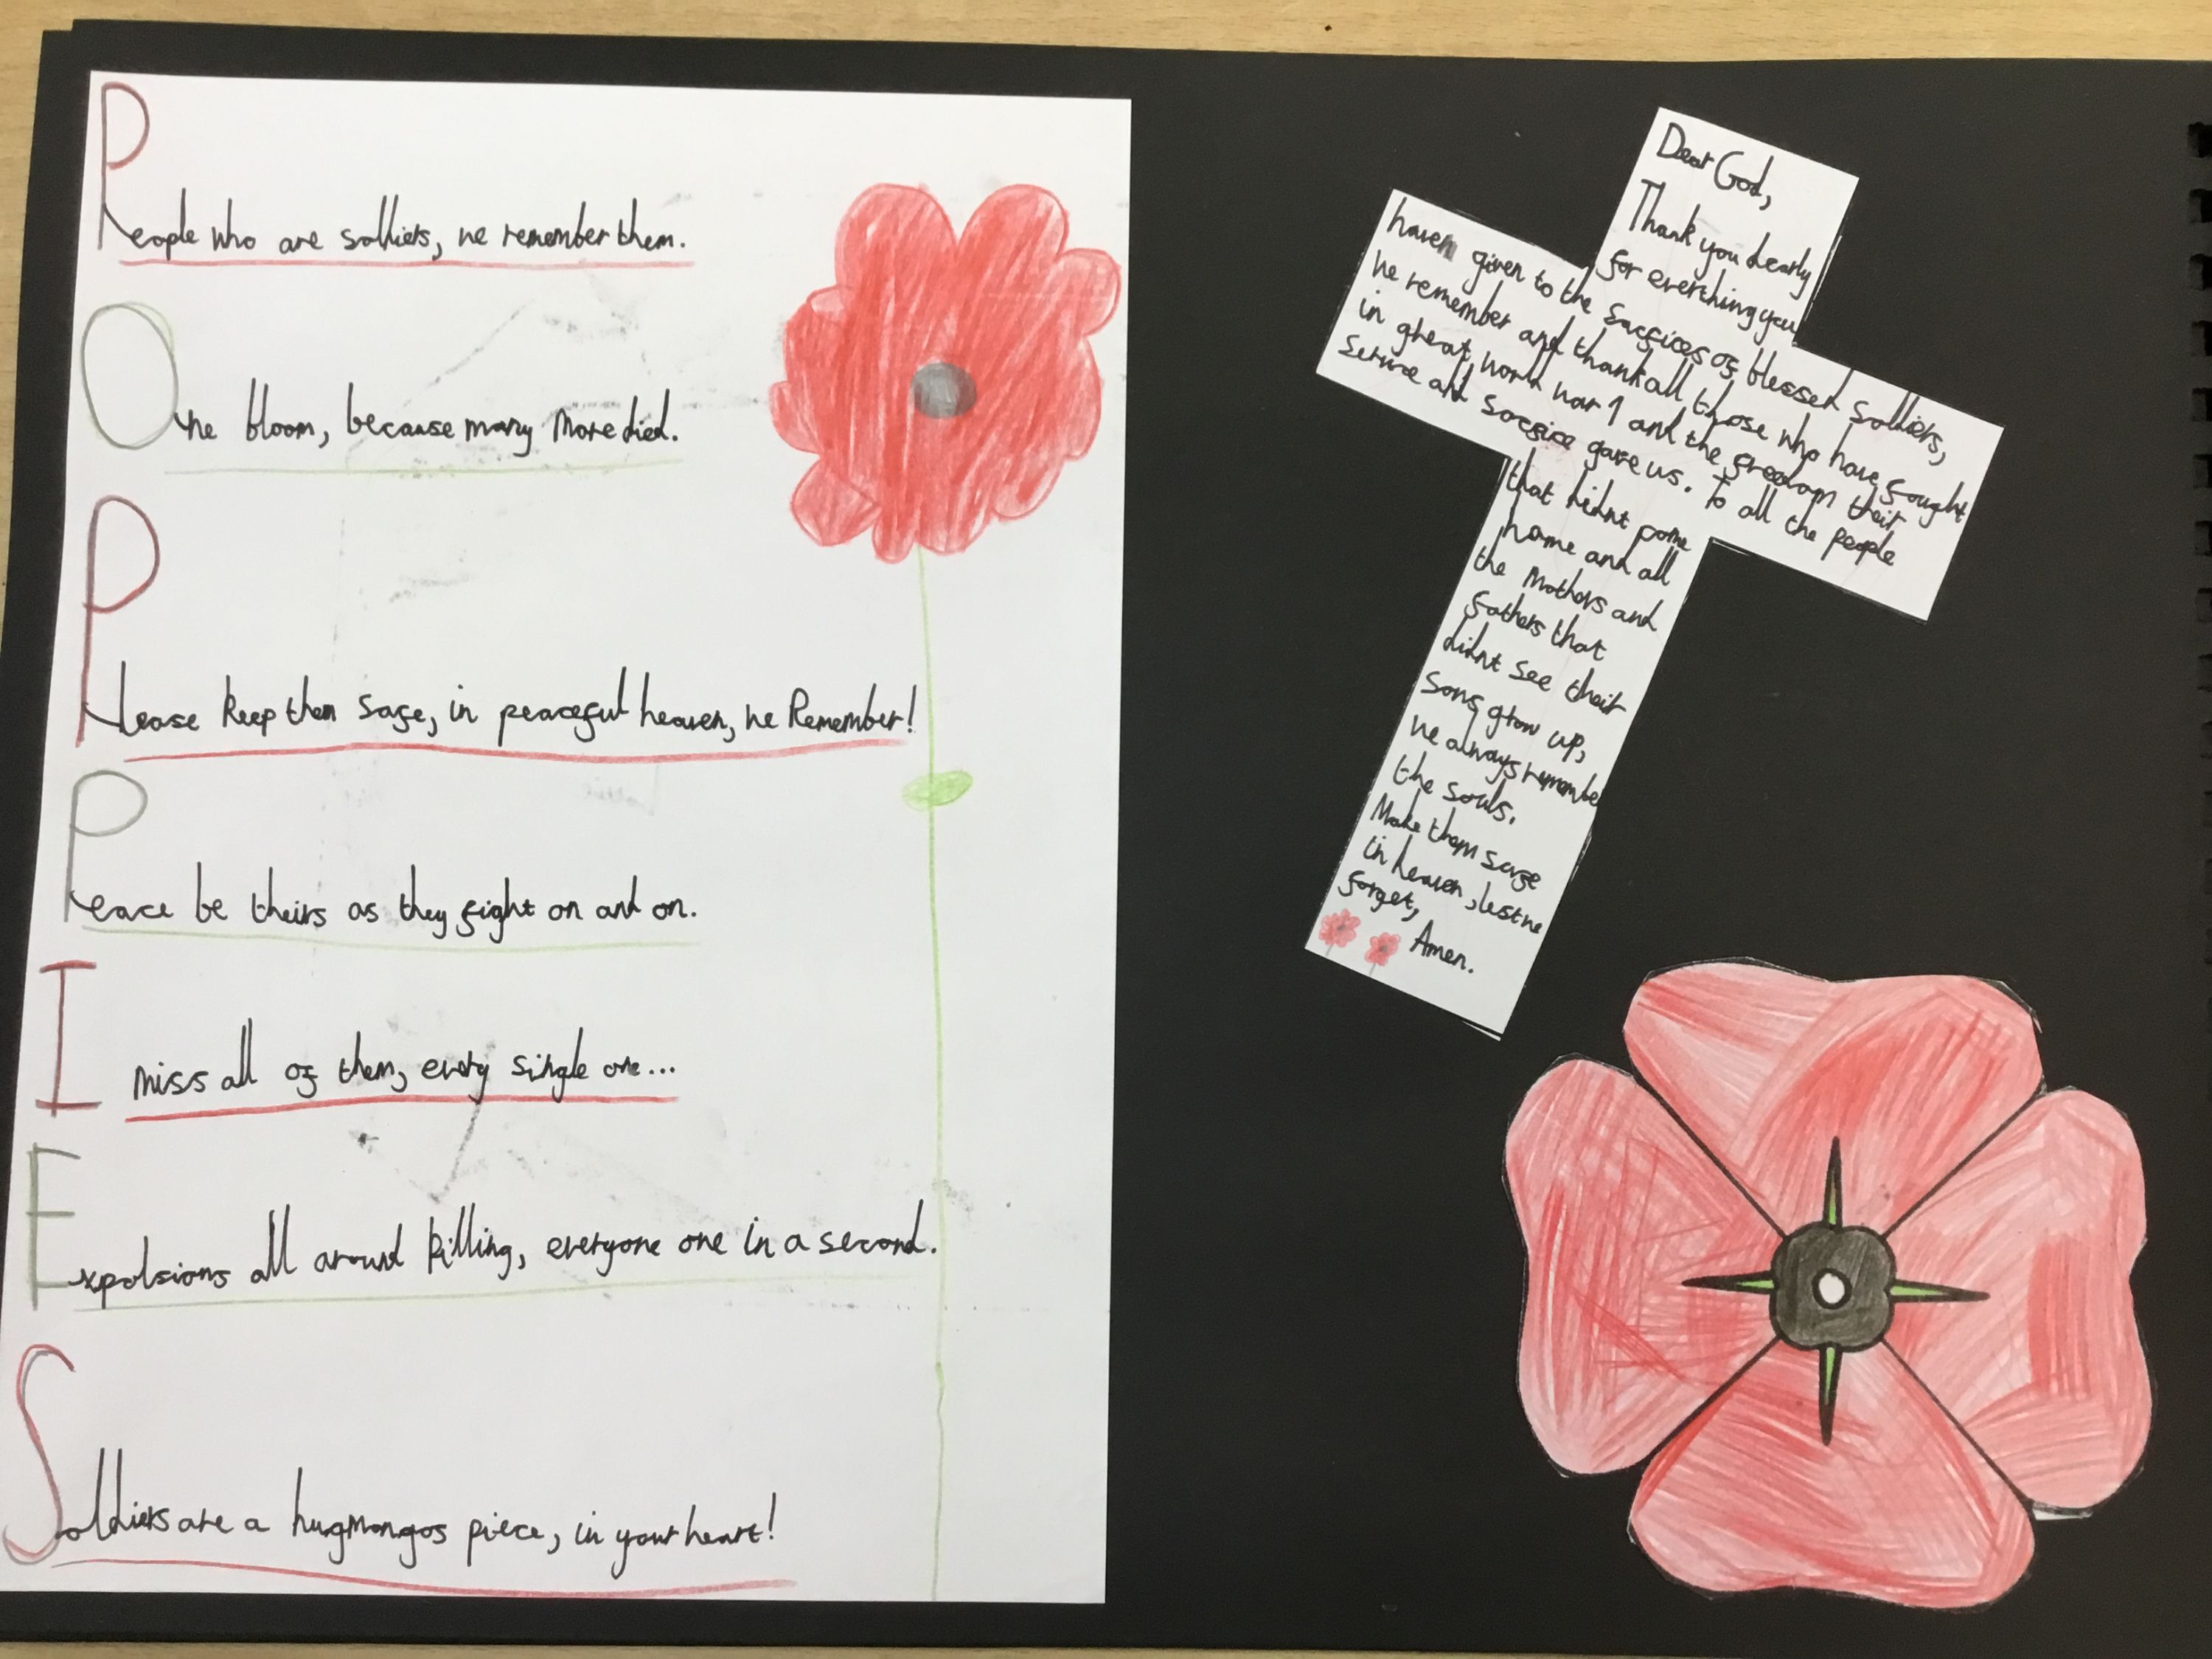 People who are solliers, we remember them.
One bloom, because many more died.
Please keep them safe, in peaceful heaven, we Remember!
Peace be theirs as they fight on and on.
I miss all of them, every single one...
Expolsions all around killing, everyone one in a second.
Soldiers are a hugmongos piece, in your heart!
Dear God,
Thank you dearly
for everthing you
haven given to the sacfices of blessed solliers,
we remember and thank all those who have fought
in great world war 1 and the freedom their
service and sacfice gave us. To all the people
that didnt come
home and all
the mothers and
fathers that
didnt see their
sons grow up,
we always remember
the souls.
Make them safe
in heaven, lest we
forget,
Amen.